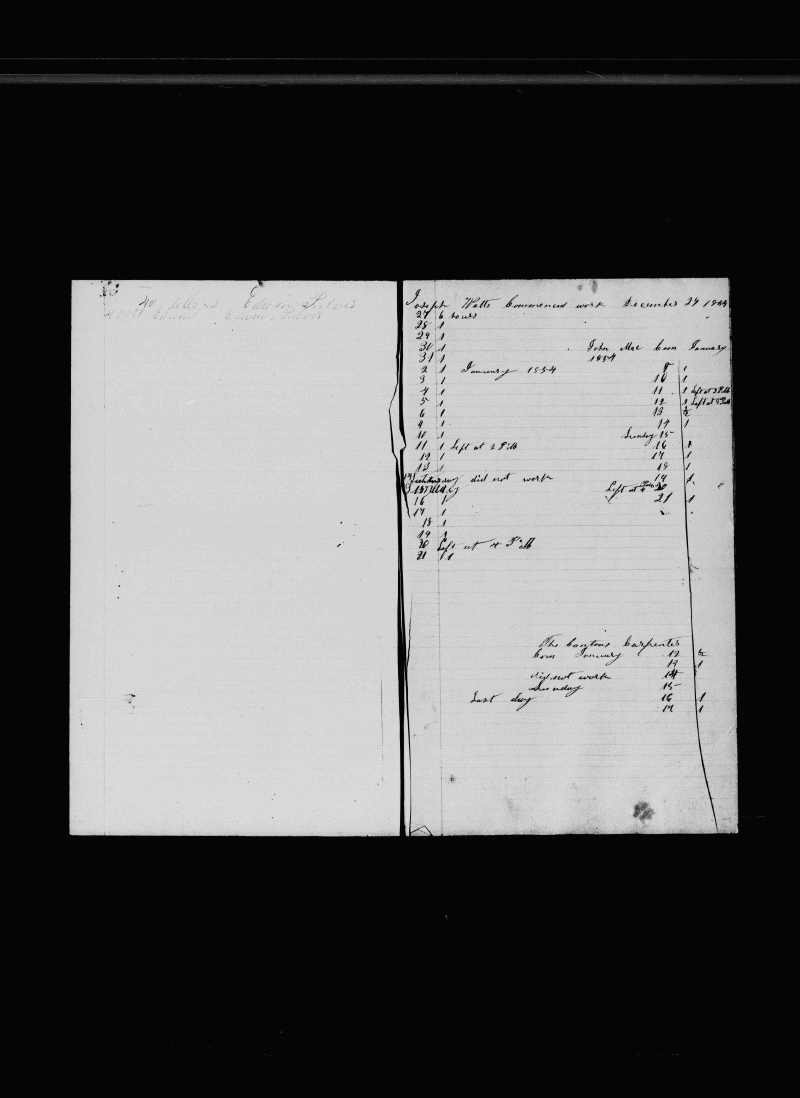 40 dollars Edwin
Edwin Edwin
Joseph Watts Commenced work December 27
27 6 hours
28 1
29 1
30 1
31 1
John Mac Com January
1854
2 1 January 1854
3 1
4 1
5 1
6 1
9 1
10 1
11 1 Left at 2 P.M
12 1
13 1
did not work
16 1
17 1
18 1
19 1
20 Left at 4 P.M
21 1
9 1
10 1
11 1 Left at 2 P.M
12 1 Left at 4 P.M
13 ½
14 1
Sunday 15
16 1
17 1
18 1
19 1
Left at 4 20
21 1
The Cantons Carpenter
Com January 12 ½
13 1
did not work 14
Sunday 15
Last day 16 1
17 1